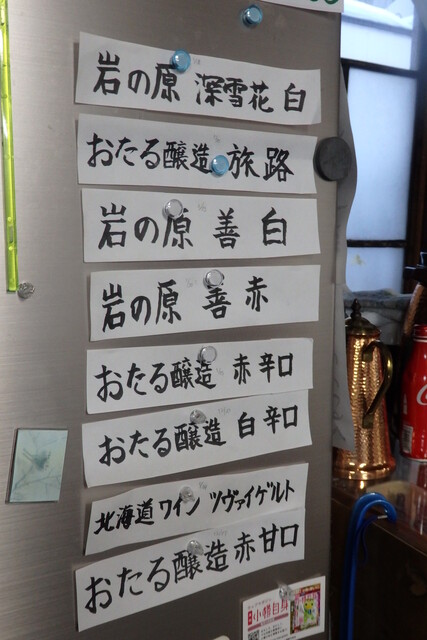 岩の原 深雪花 白
おたる醸造 旅路
岩の原 善 白
岩の原 善 赤
おたる醸造 赤辛口
おたる醸造 白辛口
北海道ワイン ツヴァイゲルト
おたる醸造 赤甘口
小幡自身